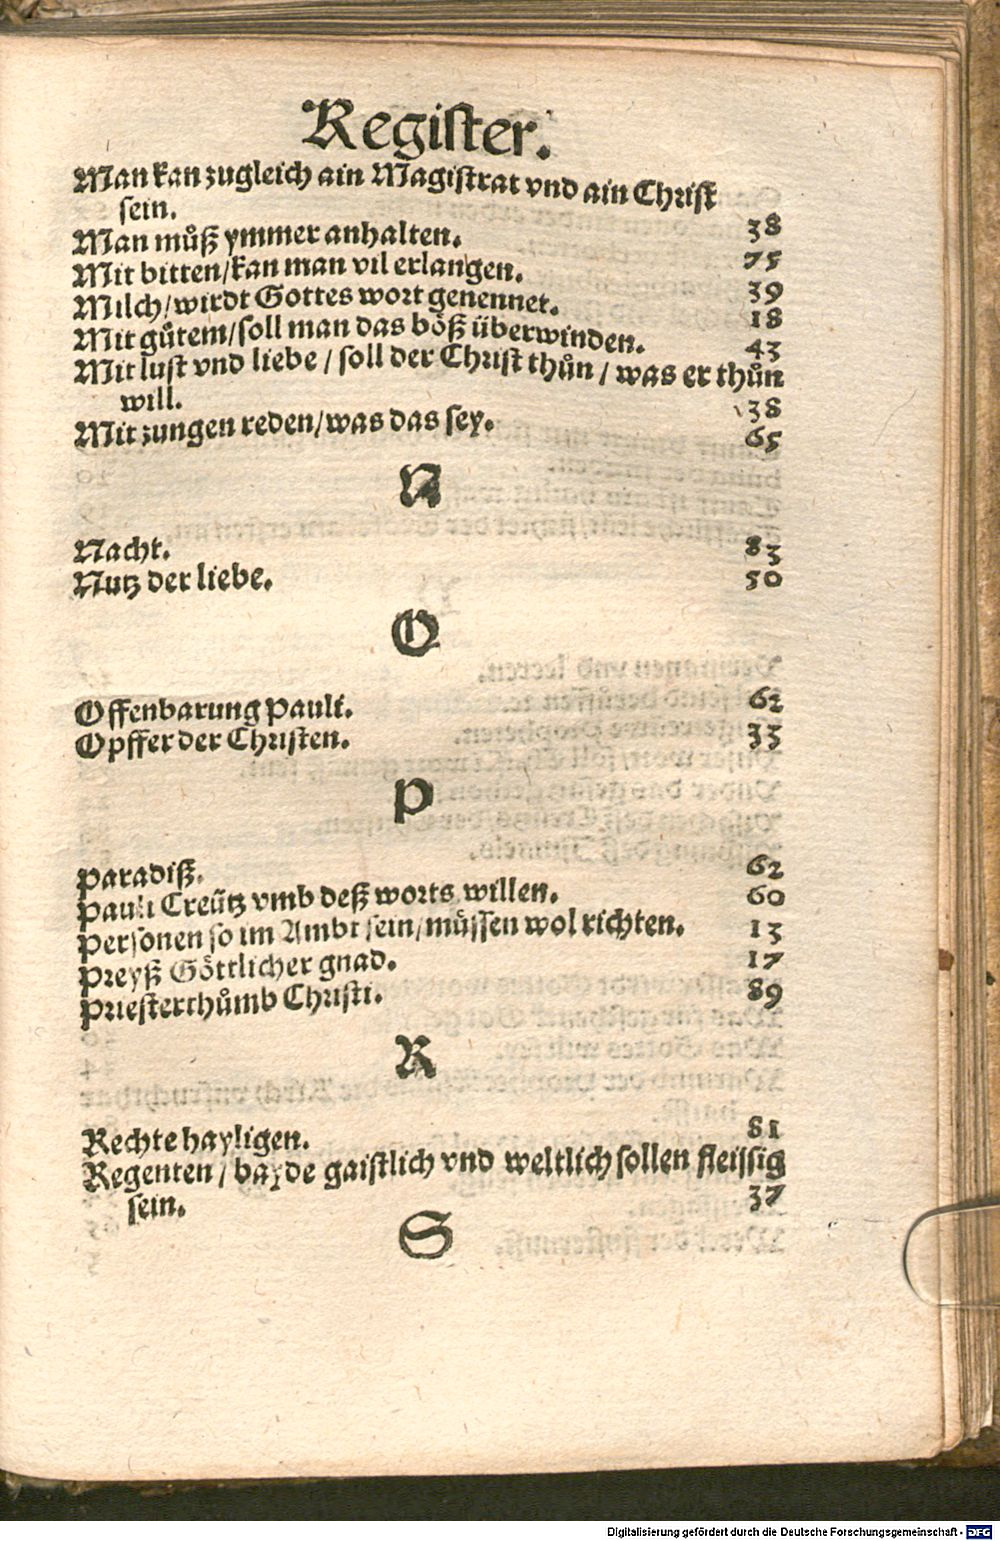 Register.
Man kan zugleich ain Magistrat vnd ain Christ
sein. 38
Man můß ymmer anhalten. 75
Mit bitten/kan man vil erlangen. 39
Milch/wirdt Gottes wort genennet. 18
Mit gůtem/soll man das böß überwinden. 43
Mit lust vnd liebe / soll der Christ thůn / was er thůn
will. 38
Mit zungen reden/was das sey. 65
N
Nacht. 83
Nutz der liebe. 50
O
Offenbarung Pauli. 62
Opffer der Christen. 33
P
Paradiß. 62
Pauli Creütz vmb deß worts willen. 60
Personen so im Ambt sein/müssen wol richten. 13
Preyß Göttlicher gnad. 17
Priesterthůmb Christi. 89
R
Rechte hayligen. 81
Regenten / bayde gaistlich vnd weltlich sollen fleissig
sein. 37
S
Digitalisierung gefördert durch die Deutsche Forschungsgemeinschaft - DFG